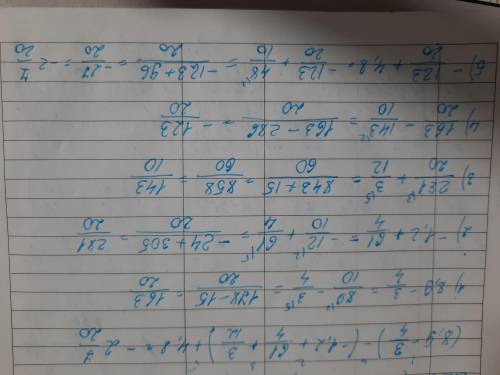 (8,9 - 3/4) - (-1,2 + 61/4 + 3/12) + 4,8 = -2 7/20
1) 8,9 - 3/4 = 89^2/10 - 3^5/4 = 178-15/20 = 163/20
2) -1,2 + 61/4 = -12^2/10 + 61^5/4 = -24+305/20 = 281/20
3) 281^3/20 + 3^5/12 = 843+15/60 = 858/60 = 143/10
4) 163/20 - 143^2/10 = 163-286/20 = -123/20
5) -123/20 + 4,8 = -123/20 + 48^2/10 = -123+96/20 = -27/20 = -2 7/20